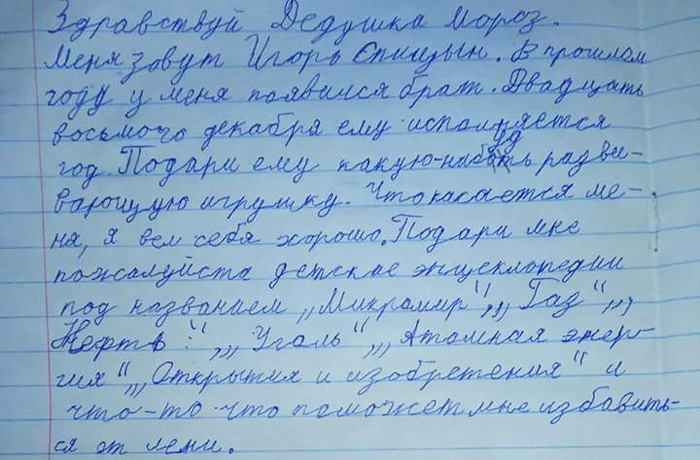 Здравствуй Дедушка Мороз.
Меня зовут Игорь Спицын. В прошлом
году у меня появился брат. Двадцать
восьмого декабря ему исполняется
год. Подари ему какую-нибудь разви-
вающую игрушку. Что касается ме-
ня, я вел себя хорошо. Подари мне
пожалуйста детские энциклопедии
под названием „Микромир“, „Газ“, „
Нефть“, „Уголь“, „Атомная энер-
гия“, „Открытия и изобретения“ и
что-то что поможет мне избавить-
ся от лени.